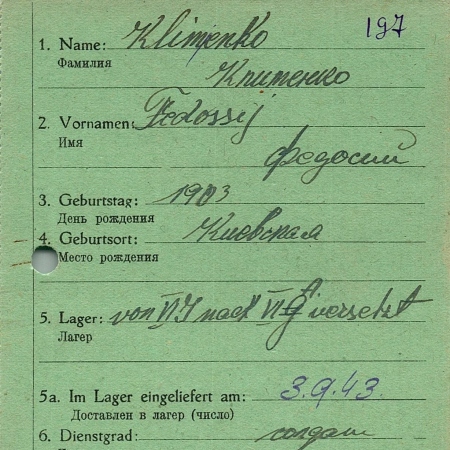 197
1. Name: Klimenko
Фамилия
Клименко
2. Vornamen: Fedossij
Имя
Федосий
3. Geburtstag: 1903
День рождения
4. Geburtsort: Киевская
Место рождения
5. Lager: von VI J nach VI G versetzt
Лагер
5a. Im Lager eingeliefert am: 3.9.43.
Доставлен в лагер (число)
6. Dienstgrad: солдат